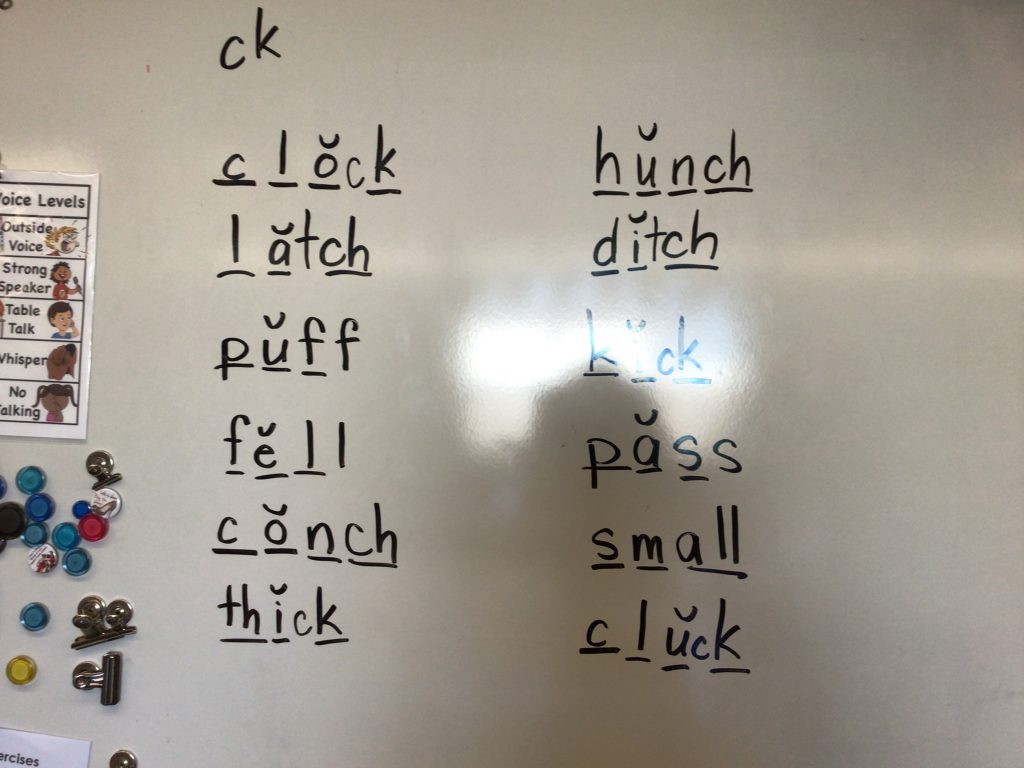 ck
clŏck
lătch
pŭff
fĕll
cŏnch
thĭck
hŭnch
dĭtch
kĭck
păss
small
clŭck
Voice Levels
Outside
Voice
Strong
Speaker
Table
Talk
Whisper
No
Talking